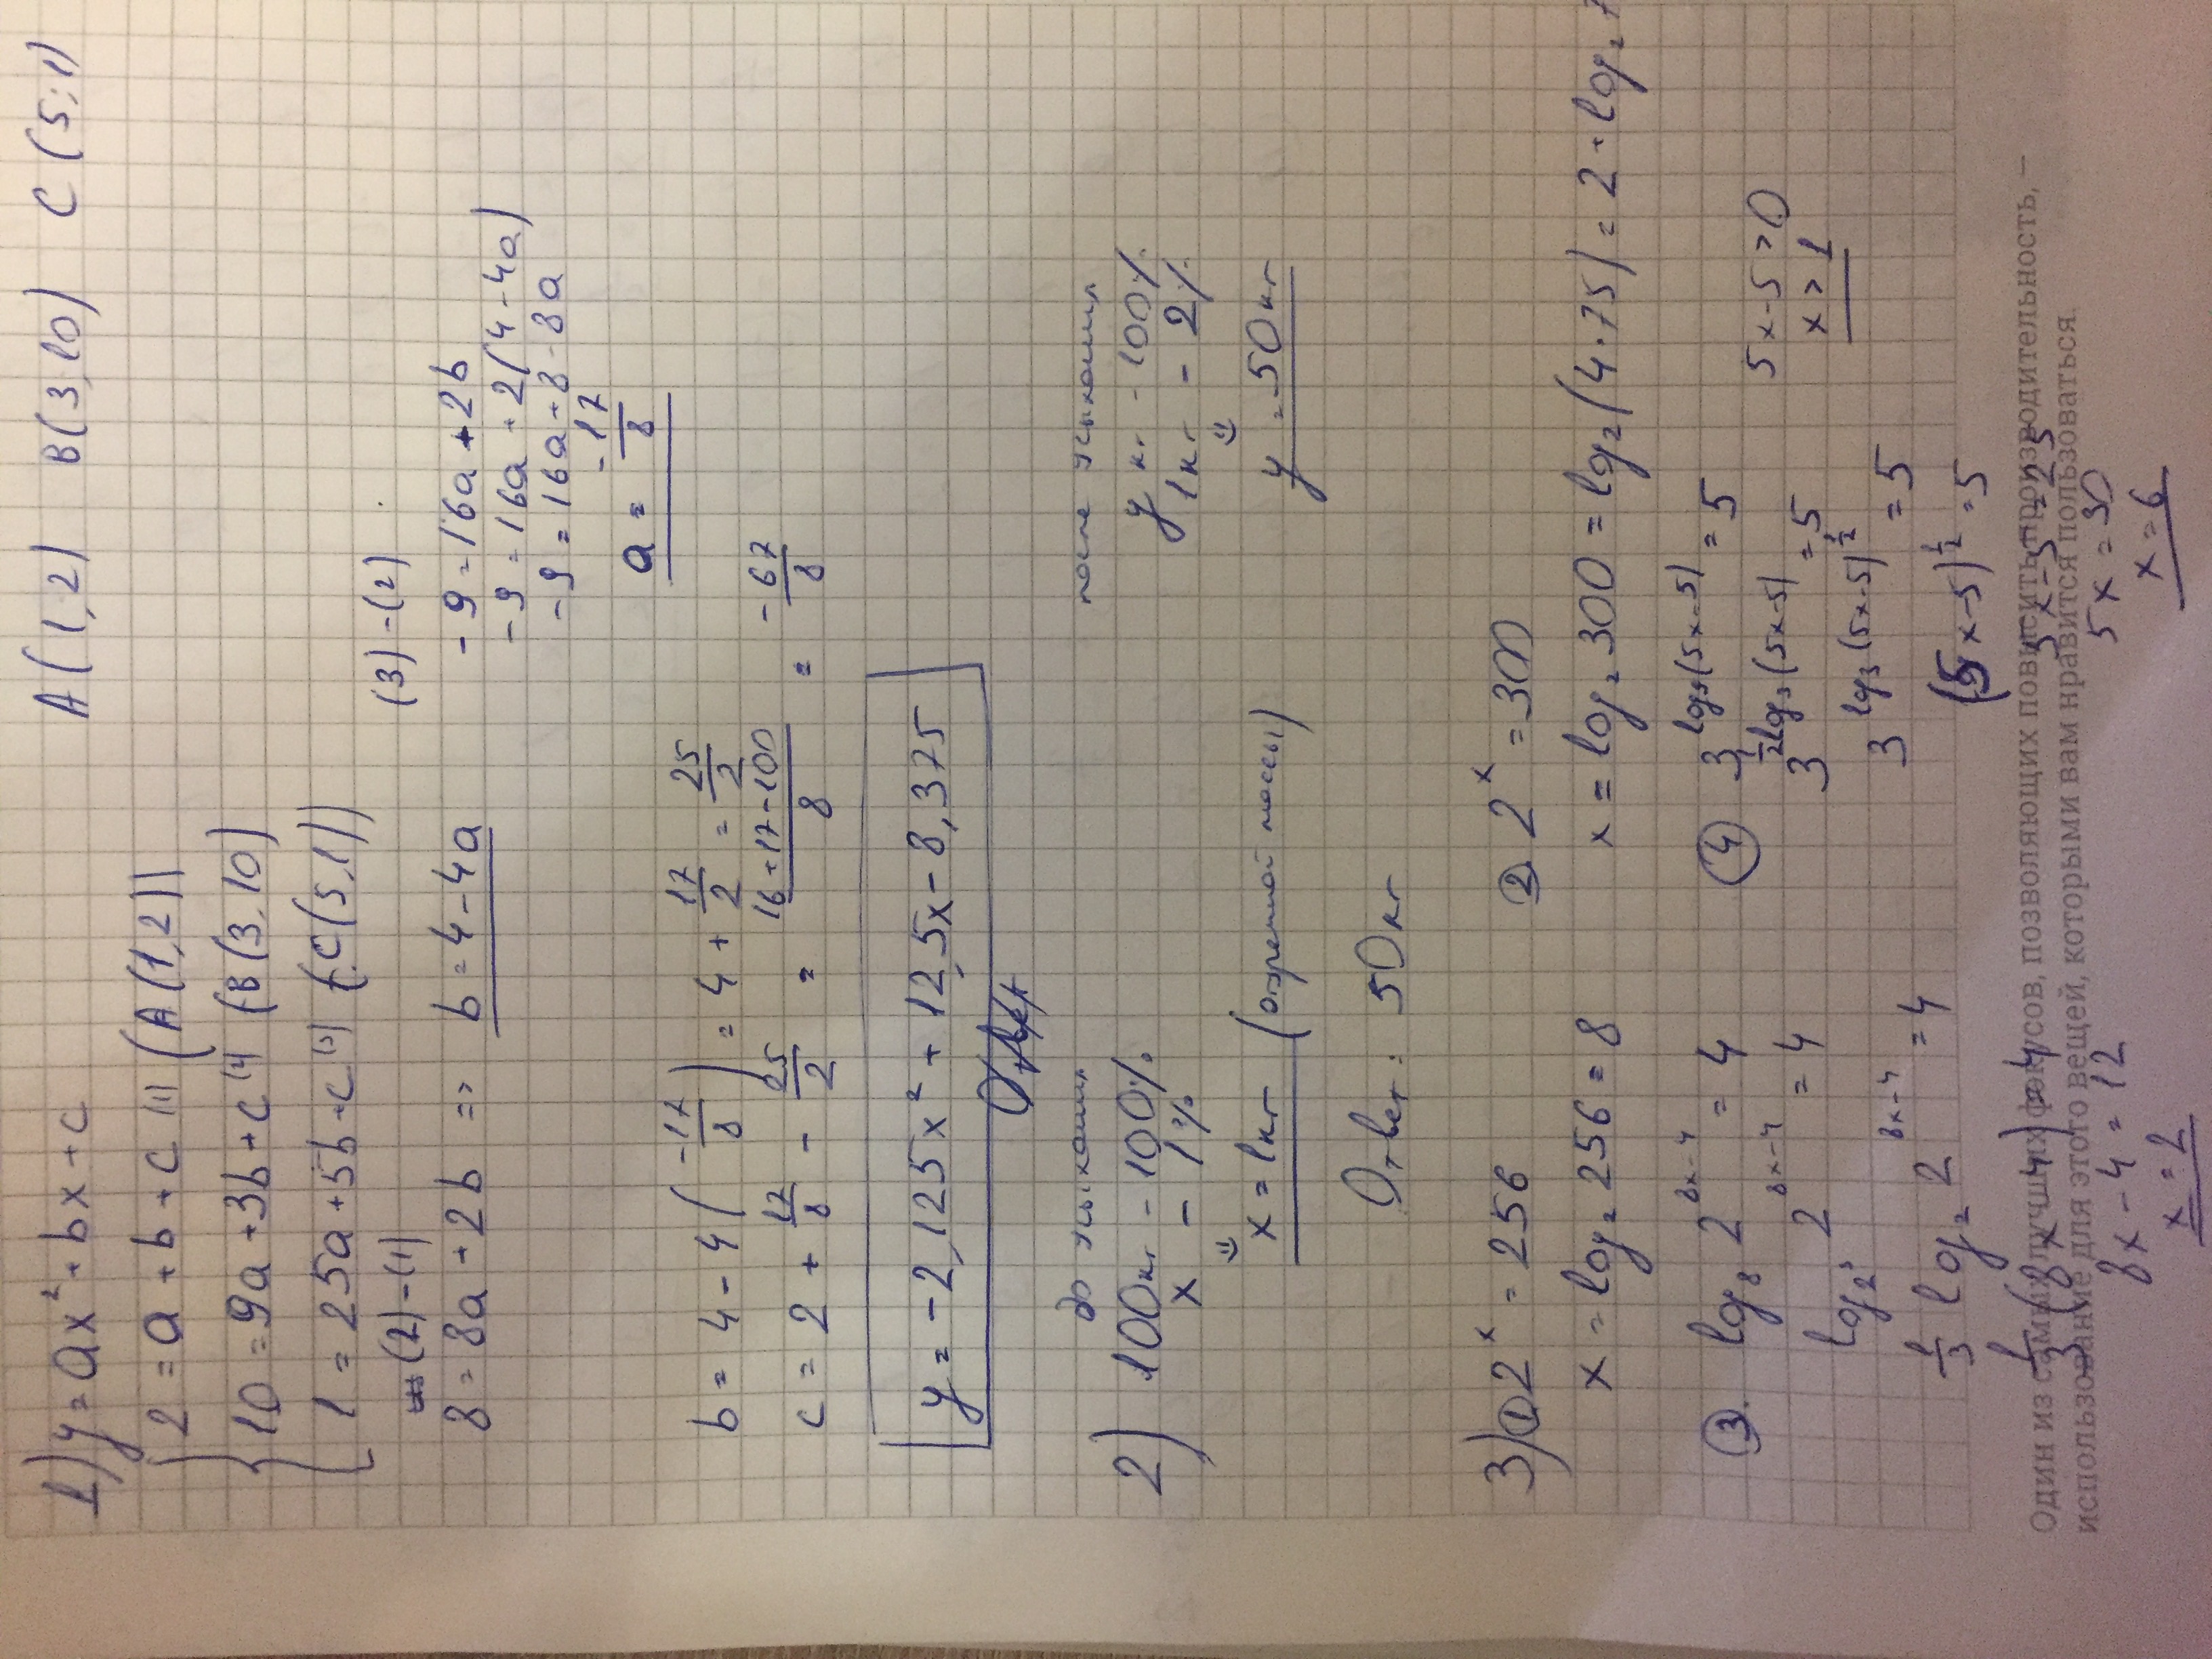 1) y = ax² + bx + c   A(1,2)   B(3,10)   C(5;1)
2 = a + b + c (1) (A(1,2))
10 = 9a + 3b + c (2) (B(3,10)
1 = 25a + 5b + c (3) (C(5,1))
(2) - (1)   (3) - (2)
8 = 8a + 2b => b = 4 - 4a   -9 = 16a + 2b
-9 = 16a + 2(4 - 4a)
-9 = 16a + 8 - 8a
a = -17/8
b = 4 - 4(-17/8) = 4 + 17/2 = 25/2
c = 2 + 17/8 - 25/2 = (16 + 17 - 100)/8 = -67/8
y = -2,125x² + 12,5x - 8,375
Ответ
до усыхания   после усыхания
2) 100кг - 100%   y кг - 100%
x - 1%   1кг - 2%
x = 1кг (огуречной массы)   y = 50кг
Ответ: 50кг
3) ① 2^x = 256   ② 2^x = 300
x = log₂ 256 = 8   x = log₂ 300 = log₂(4·75) = 2 + log₂ 7
③. log₈ 2^(8x-4) = 4   ④ 3^(log₉(5x-5)) = 5
log_(2³) 2^(8x-4) = 4   3^(1/2 log₃(5x-5)) = 5   5x-5 > 0
x > 1
1/3 log₂ 2^(8x-4) = 4   3^(log₃(5x-5)^(1/2)) = 5
1/3 (8x-4) = 4   (5x-5)^(1/2) = 5
8x - 4 = 12   5x-5 = 25
x = 2   5x = 30
x = 6
Один из самых лучших фокусов, позволяющих повысить производительность, —
использование для этого вещей, которыми вам нравится пользоваться.